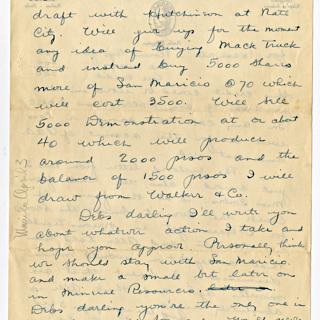 draft with Hutchinson at Natl
City. Will give up for the moment
any idea of buying Mack Truck
and instead buy 5000 shares
more of San Maricio @ 70 which
will cost 3500. Will sell
5000 Demonstration at or abot
40 which will produce
around 2000 pesos and the
balance of 1500 pesos I will
draw from Walker & Co.
Debs darling I'll write you
about whatever action I take and
hope you approve. Personally think
we should stay with San Maricio
and make a small bet later on
in Mineral Resources.
Debs darling you're the only one in